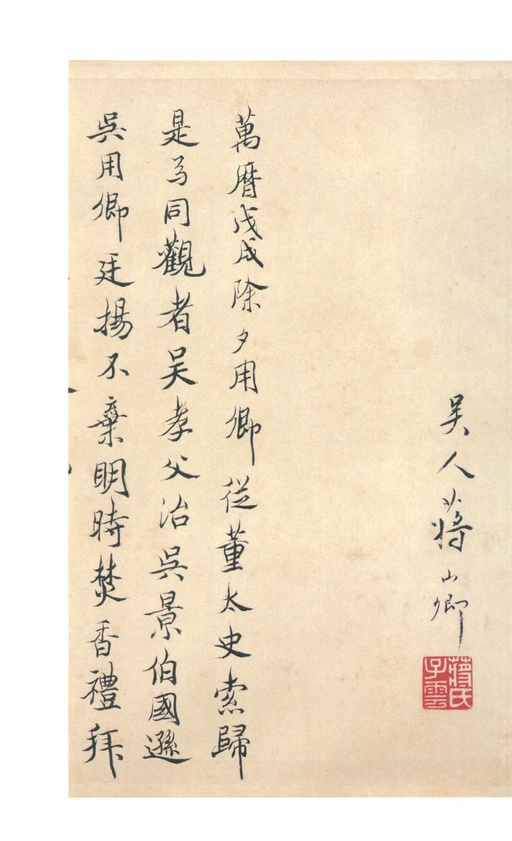 吳人蔣山卿
蔣氏子雲
萬曆戊戌除夕用卿從董太史索歸
是日同觀者吴孝父治吳景伯國遜
吳用卿廷揚不棄明時焚香禮拜